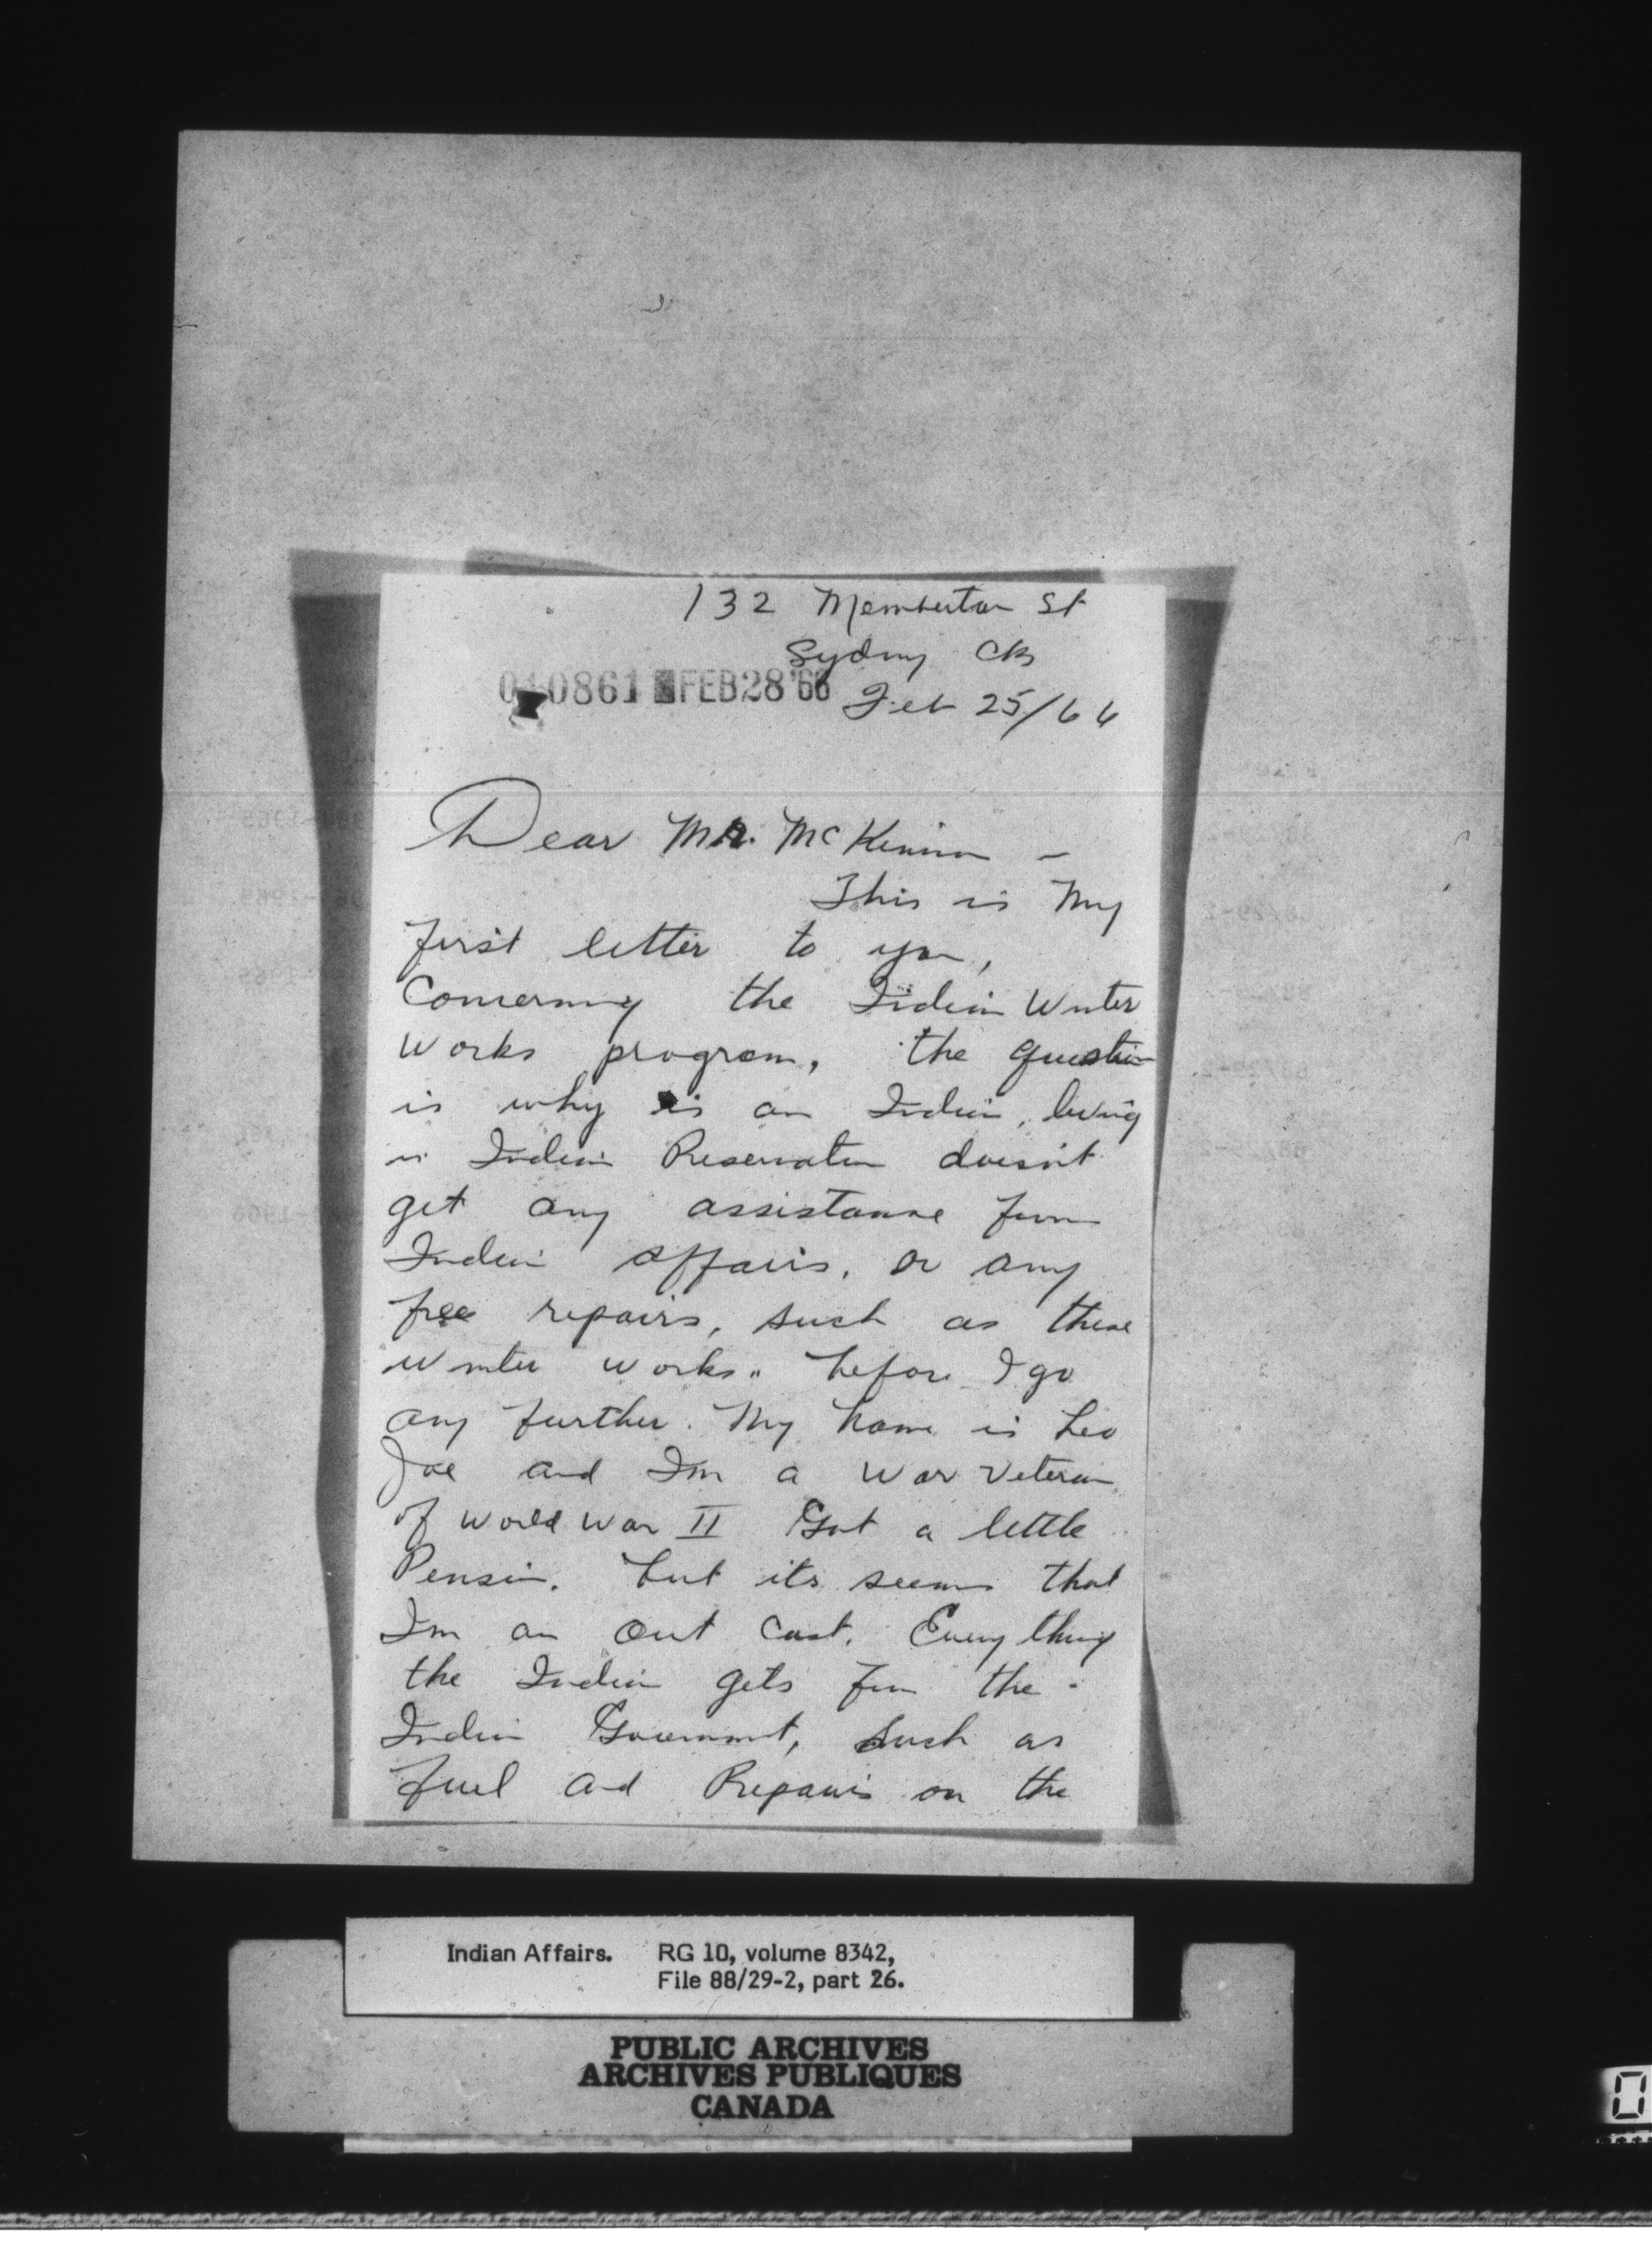 132 Membertou St
Sydney CB
040861 FEB 28 '66
Feb 25/66
Dear Mr. McKinnon -
This is My
first letter to you,
Concerning the Indian Winter
Works program, the question
is why is an Indian, living
in Indian Reservation doesn't
get any assistance from
Indian affairs, or any
free repairs, such as these
winter works.. before I go
any further. My name is Leo
Joe and I'm a War Veteran
of World War II Got a little
Pension. but its seems that
I'm an Out Cast. Every thing
the Indian gets from the
Indian Government, such as
fuel and Repairs on the
Indian Affairs. RG 10, volume 8342,
File 88/29-2, part 26.
PUBLIC ARCHIVES
ARCHIVES PUBLIQUES
CANADA
0